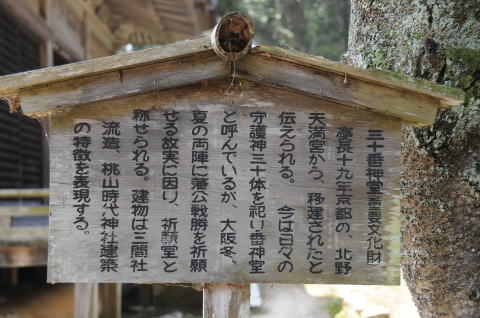 三十番神堂 重要文化財
慶長十九年京都の、北野
天満宮から、移建されたと
伝えられる。　今は日々の
守護神三十体を祀り番神堂
と呼んでいるが、大阪冬、
夏の両陣に藩公戦勝を祈願
せる故実に因り、祈願堂と
称せられる。建物は三間社
流造、桃山時代神社建築
の特徴を表現する。